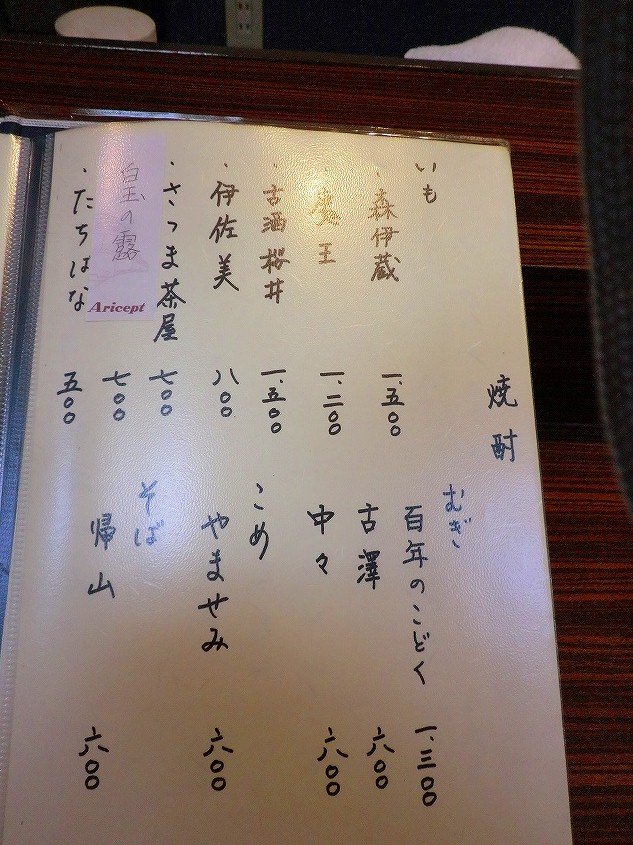 焼酎
いも
・森伊蔵 一、五〇〇
・魔王 一、二〇〇
・古酒櫻井 一、五〇〇
・伊佐美 八〇〇
・さつま茶屋 七〇〇
白玉の露 七〇〇
Aricept
・たちばな 五〇〇
むぎ
百年のこどく 一、三〇〇
古澤 六〇〇
中々 六〇〇
こめ
やませみ 六〇〇
そば
帰山 六〇〇